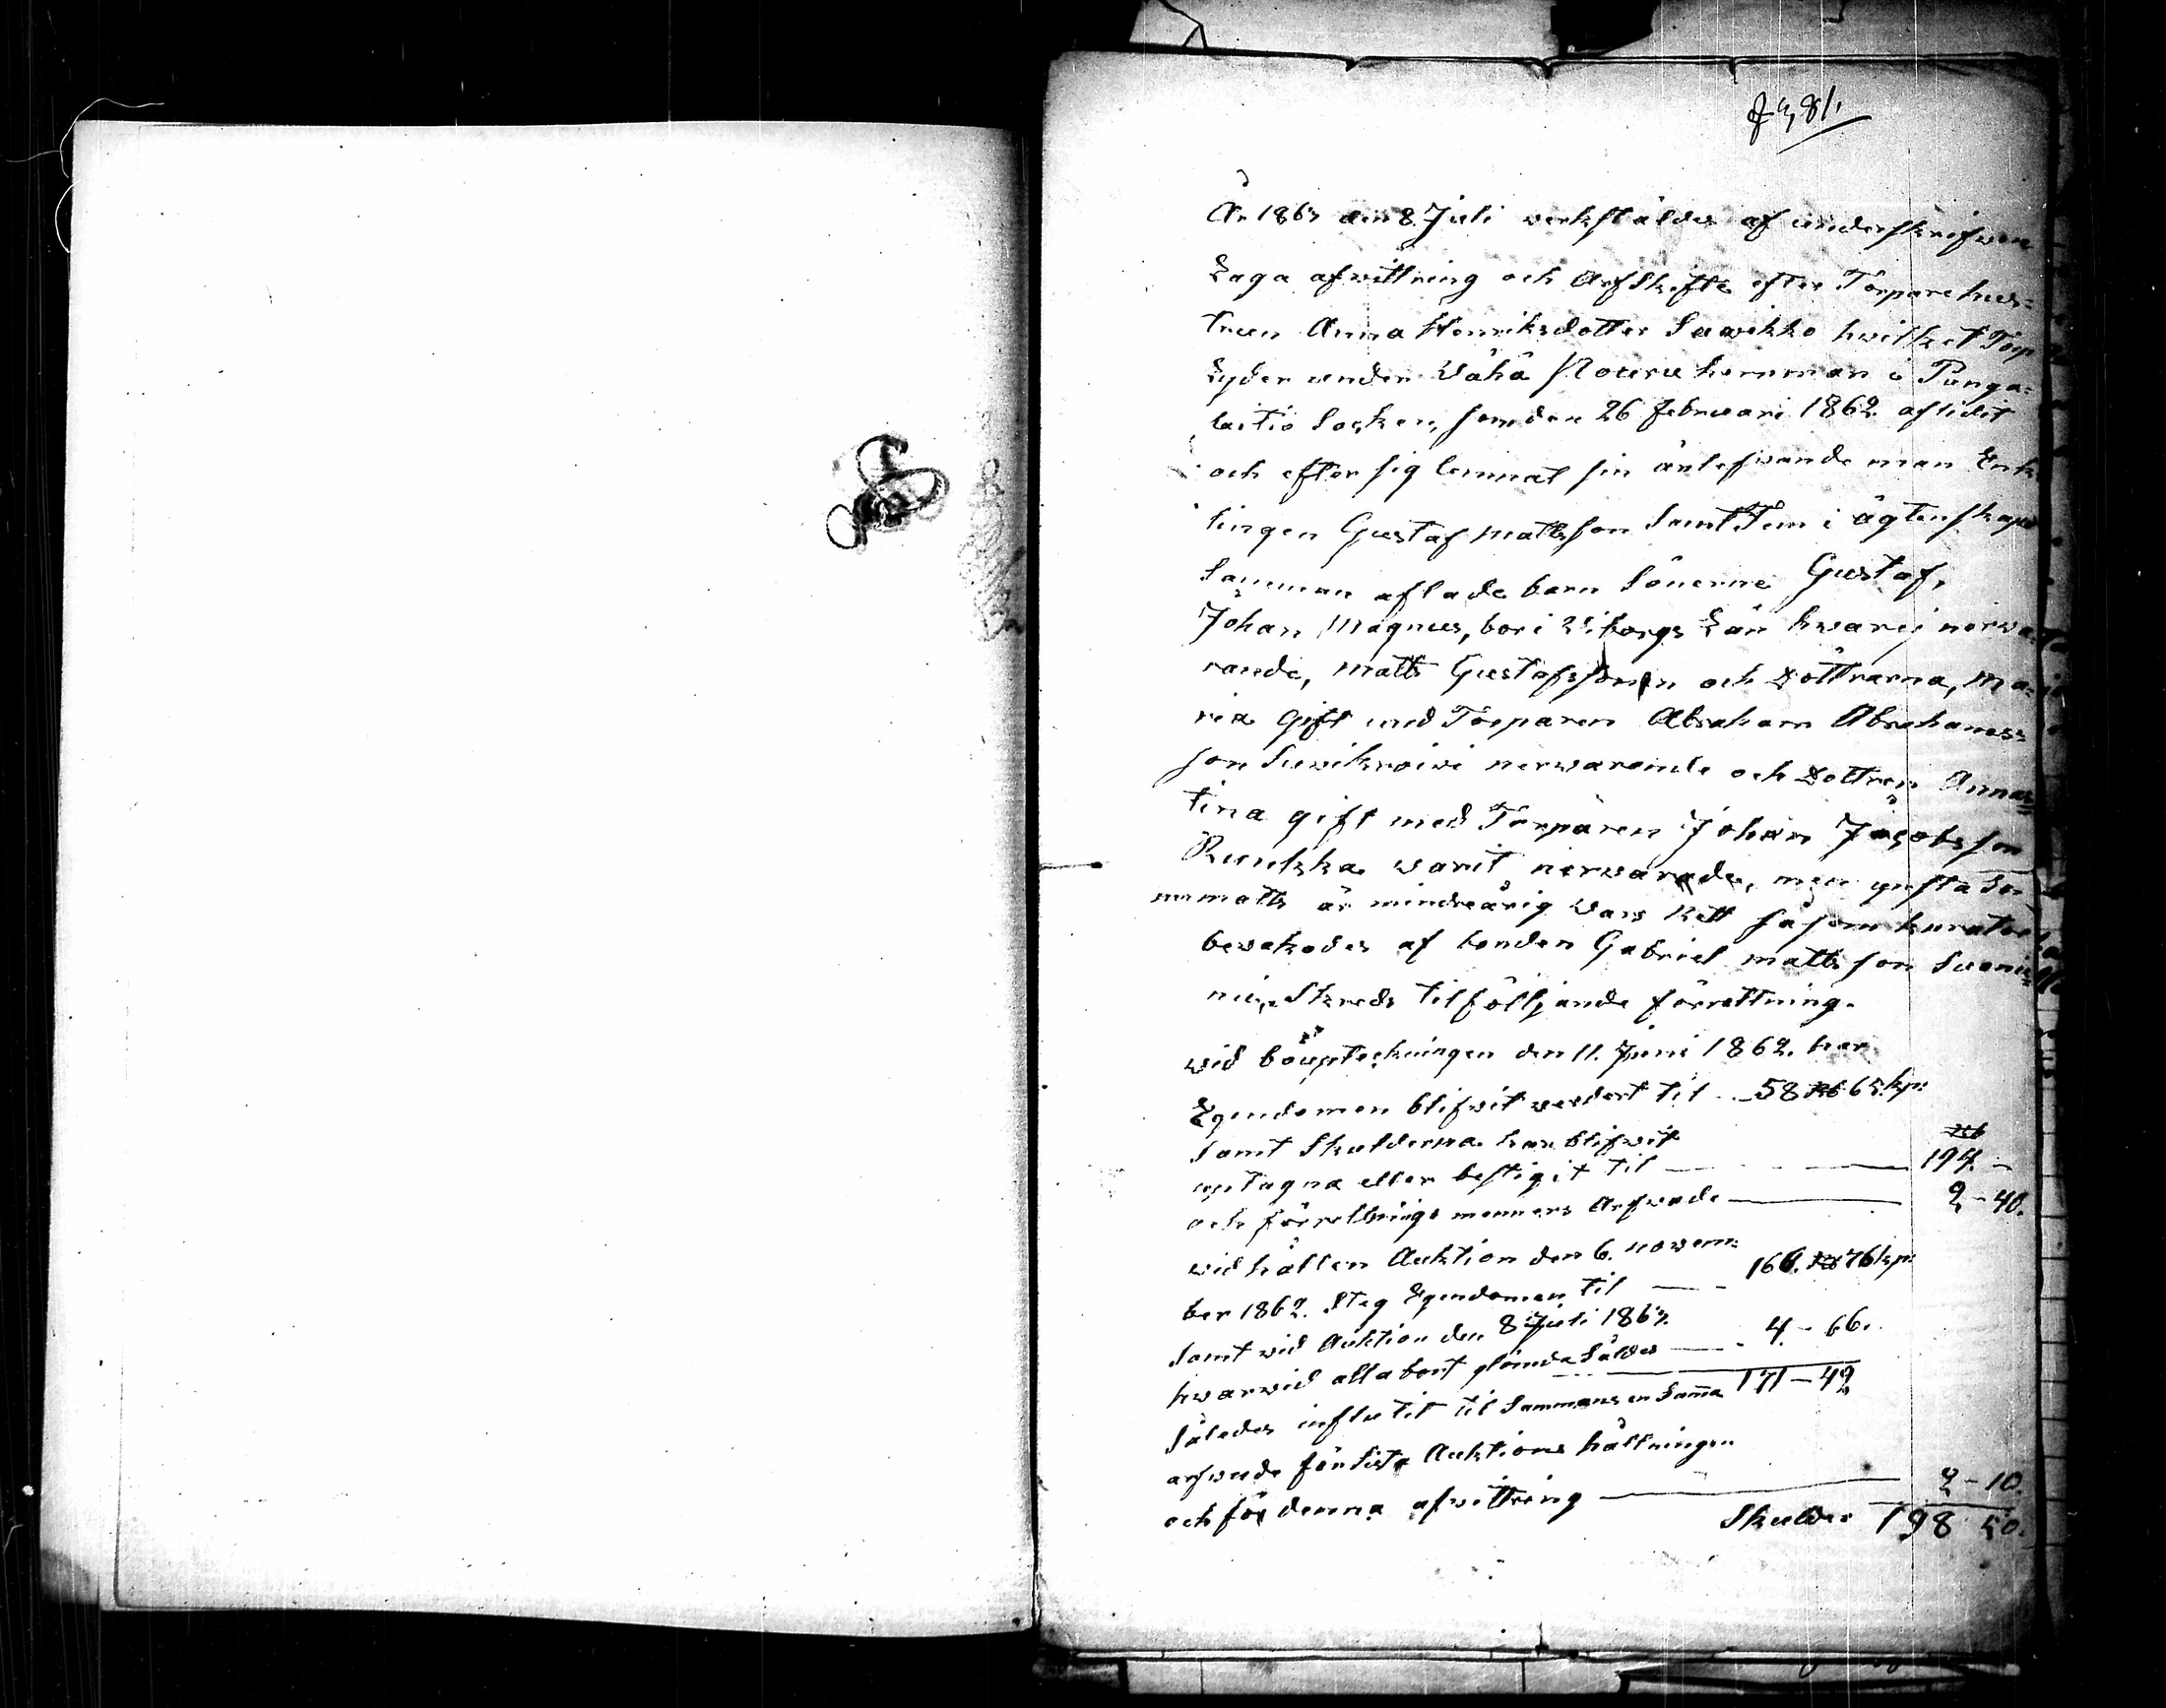 År 1863 den 8. Juli verkstäldes af underskrifwne
Laga afwittring och Arfskifte efter Torparehus=
trun Anna Henriksdotter Suwikko hwilket Torp
Lyder under Wähä Noteru hemman i Punga=
laitio Socken, som den 26 Februari 1862 aflidit
och efter sig lemnat sin änlefwande man Enk
lingen Gustaf Mattsson Samt Fem i ägtenskapet
Samman aflade barn Sönerne Gustaf,
Johan Magnus, bor i Wiborgs Län hwar ej nerwa=
rande, Matts Gustafsson och Döttrarna, Ma=
ria gift med Torparen Abraham Abrahams=
son Suwikroivi nerwarande och Dottren Annas
tina gift med Torparen Johan Jacobsson
Runkka warit nerwarade, men yngsta So=
nn matts är mindreårig wars Rett såsom kurator
bewakades af bonden Gabriel mattsson Swenni
mi, Skreds til följande förrettning.
wid bouptechningen den 11. Juni 1862. har
Egendomen blifwit werdert til - 58 Rb 63. kp:
Samt Skulderna har blifwit
uptagna eller bestigit til — 194. -
och förrettnings menners Arfwode — 2 - 40.
wid hållen Auktion den 6. novem=
ber 1862. Steg Egendomen til — 166. Rb 76 kp:
Samt wid Auktion den 8 Juli 1863.
hwarwid alla bort glömda Såldes — 4 - 66.
Således influtit til Sammans en Summa 171 - 42
arfwude för Sista Auktions hållningen
och för denna afwittring — 2 - 10.
Skulder 198 50.